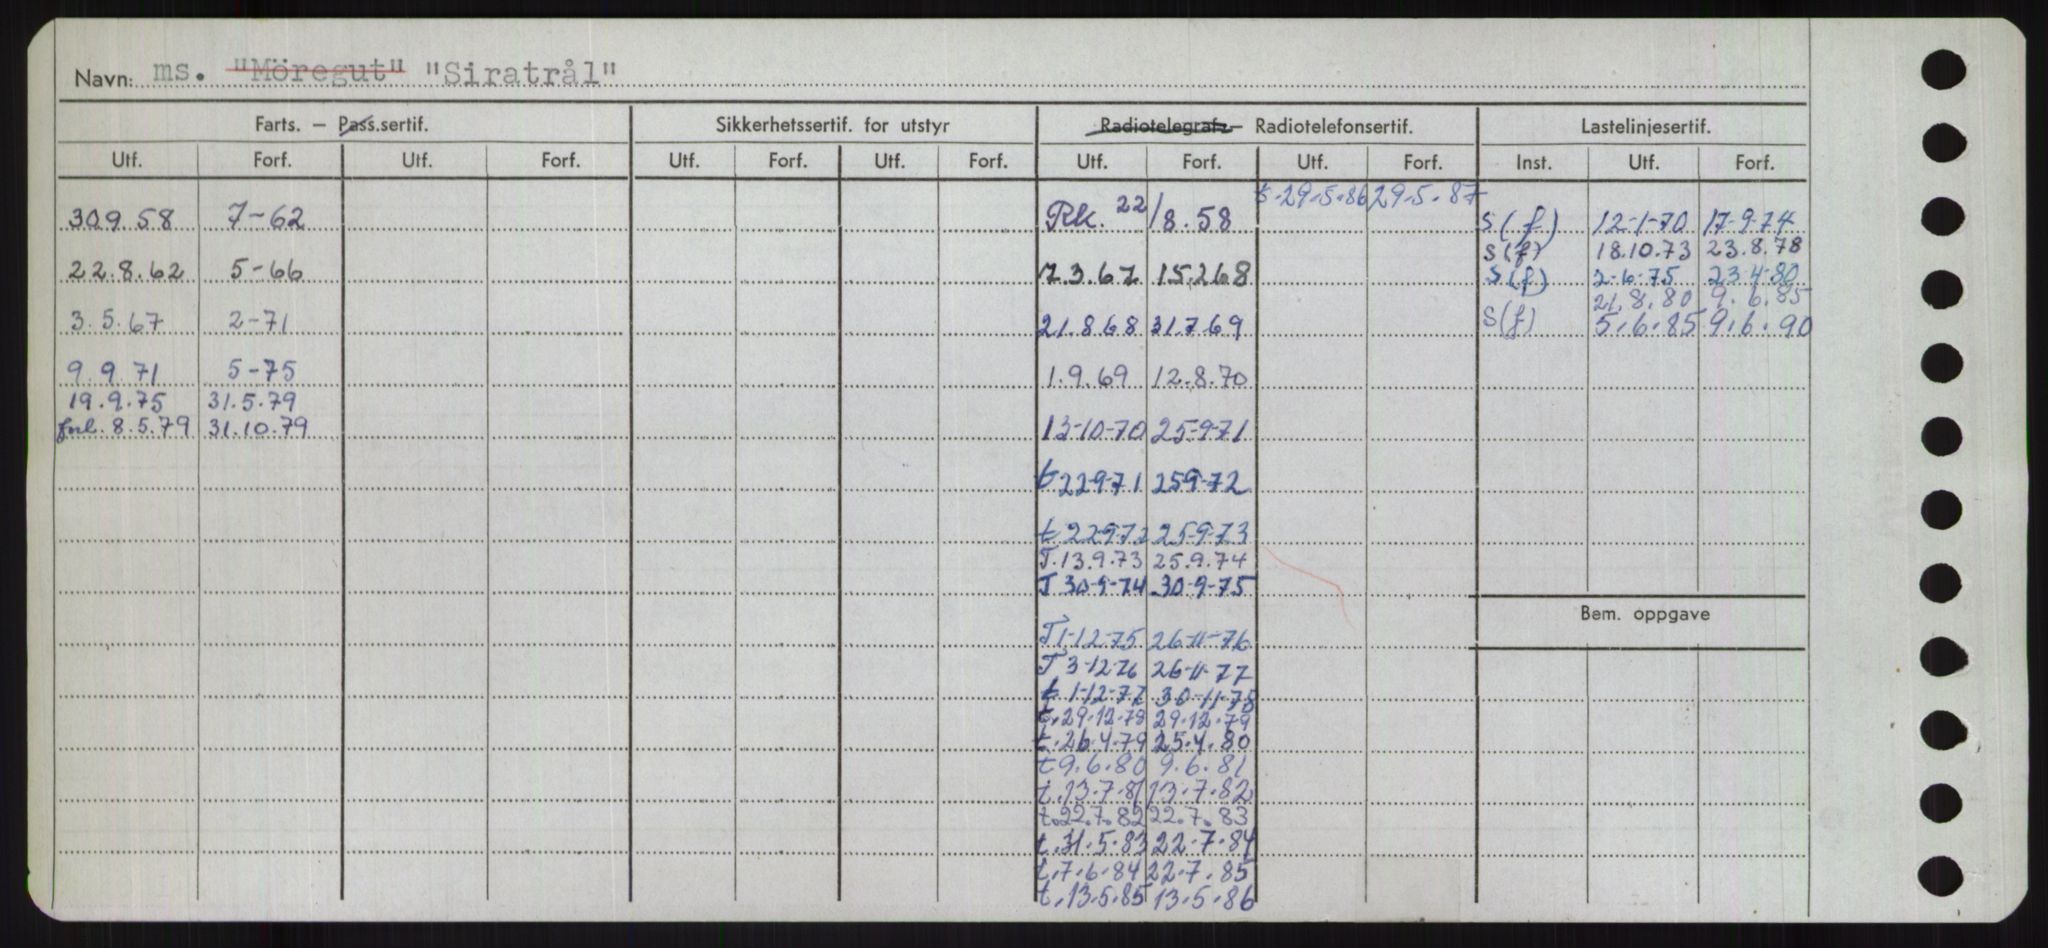 Navn: ms. "Möregut" "Siratrål"
Farts. – Pass.sertif. Sikkerhetssertif. for utstyr Radiotelegraf- – Radiotelefonsertif. Lastelinjesertif.
Utf. Forf. Utf. Forf. Utf. Forf. Utf. Forf. Utf. Forf. Utf. Forf. Inst. Utf. Forf.
t.29.5.86 29.5.87
30.9.58 7-62 Rk. 22/8.58 S(f) 12-1-70 17-9-74
S(f) 18.10.73 23.8.78
22.8.62 5-66 7.3.67 15.2.68 S(f) 2-6-75 23-4-80
21.8.80 9.6.85
3.5.67 2-71 21.8.68 31.7.69 S(f) 5.6.85 9.6.90
9.9.71 5-75 1.9.69 12.8.70
19.9.75 31.5.79
forl. 8.5.79 31.10.79 13-10-70 25-9-71
t 22-9-71 25-9-72
t 22-9-72 25-9-73
T.13.9.73 25.9.74
T 30-9-74 30-9-75
Bem. oppgave
T 1-12-75 26-11-76
T 3-12-76 26-11-77
t 1-12-77 30-11-78
t.29.12.78 29.12.79
t.26.4.79 25.4.80
t 9.6.80 9.6.81
t.13.7.81 13.7.82
t.22.7.82 22.7.83
t.31.5.83 22.7.84
t.7.6.84 22.7.85
t.13.5.85 13.5.86